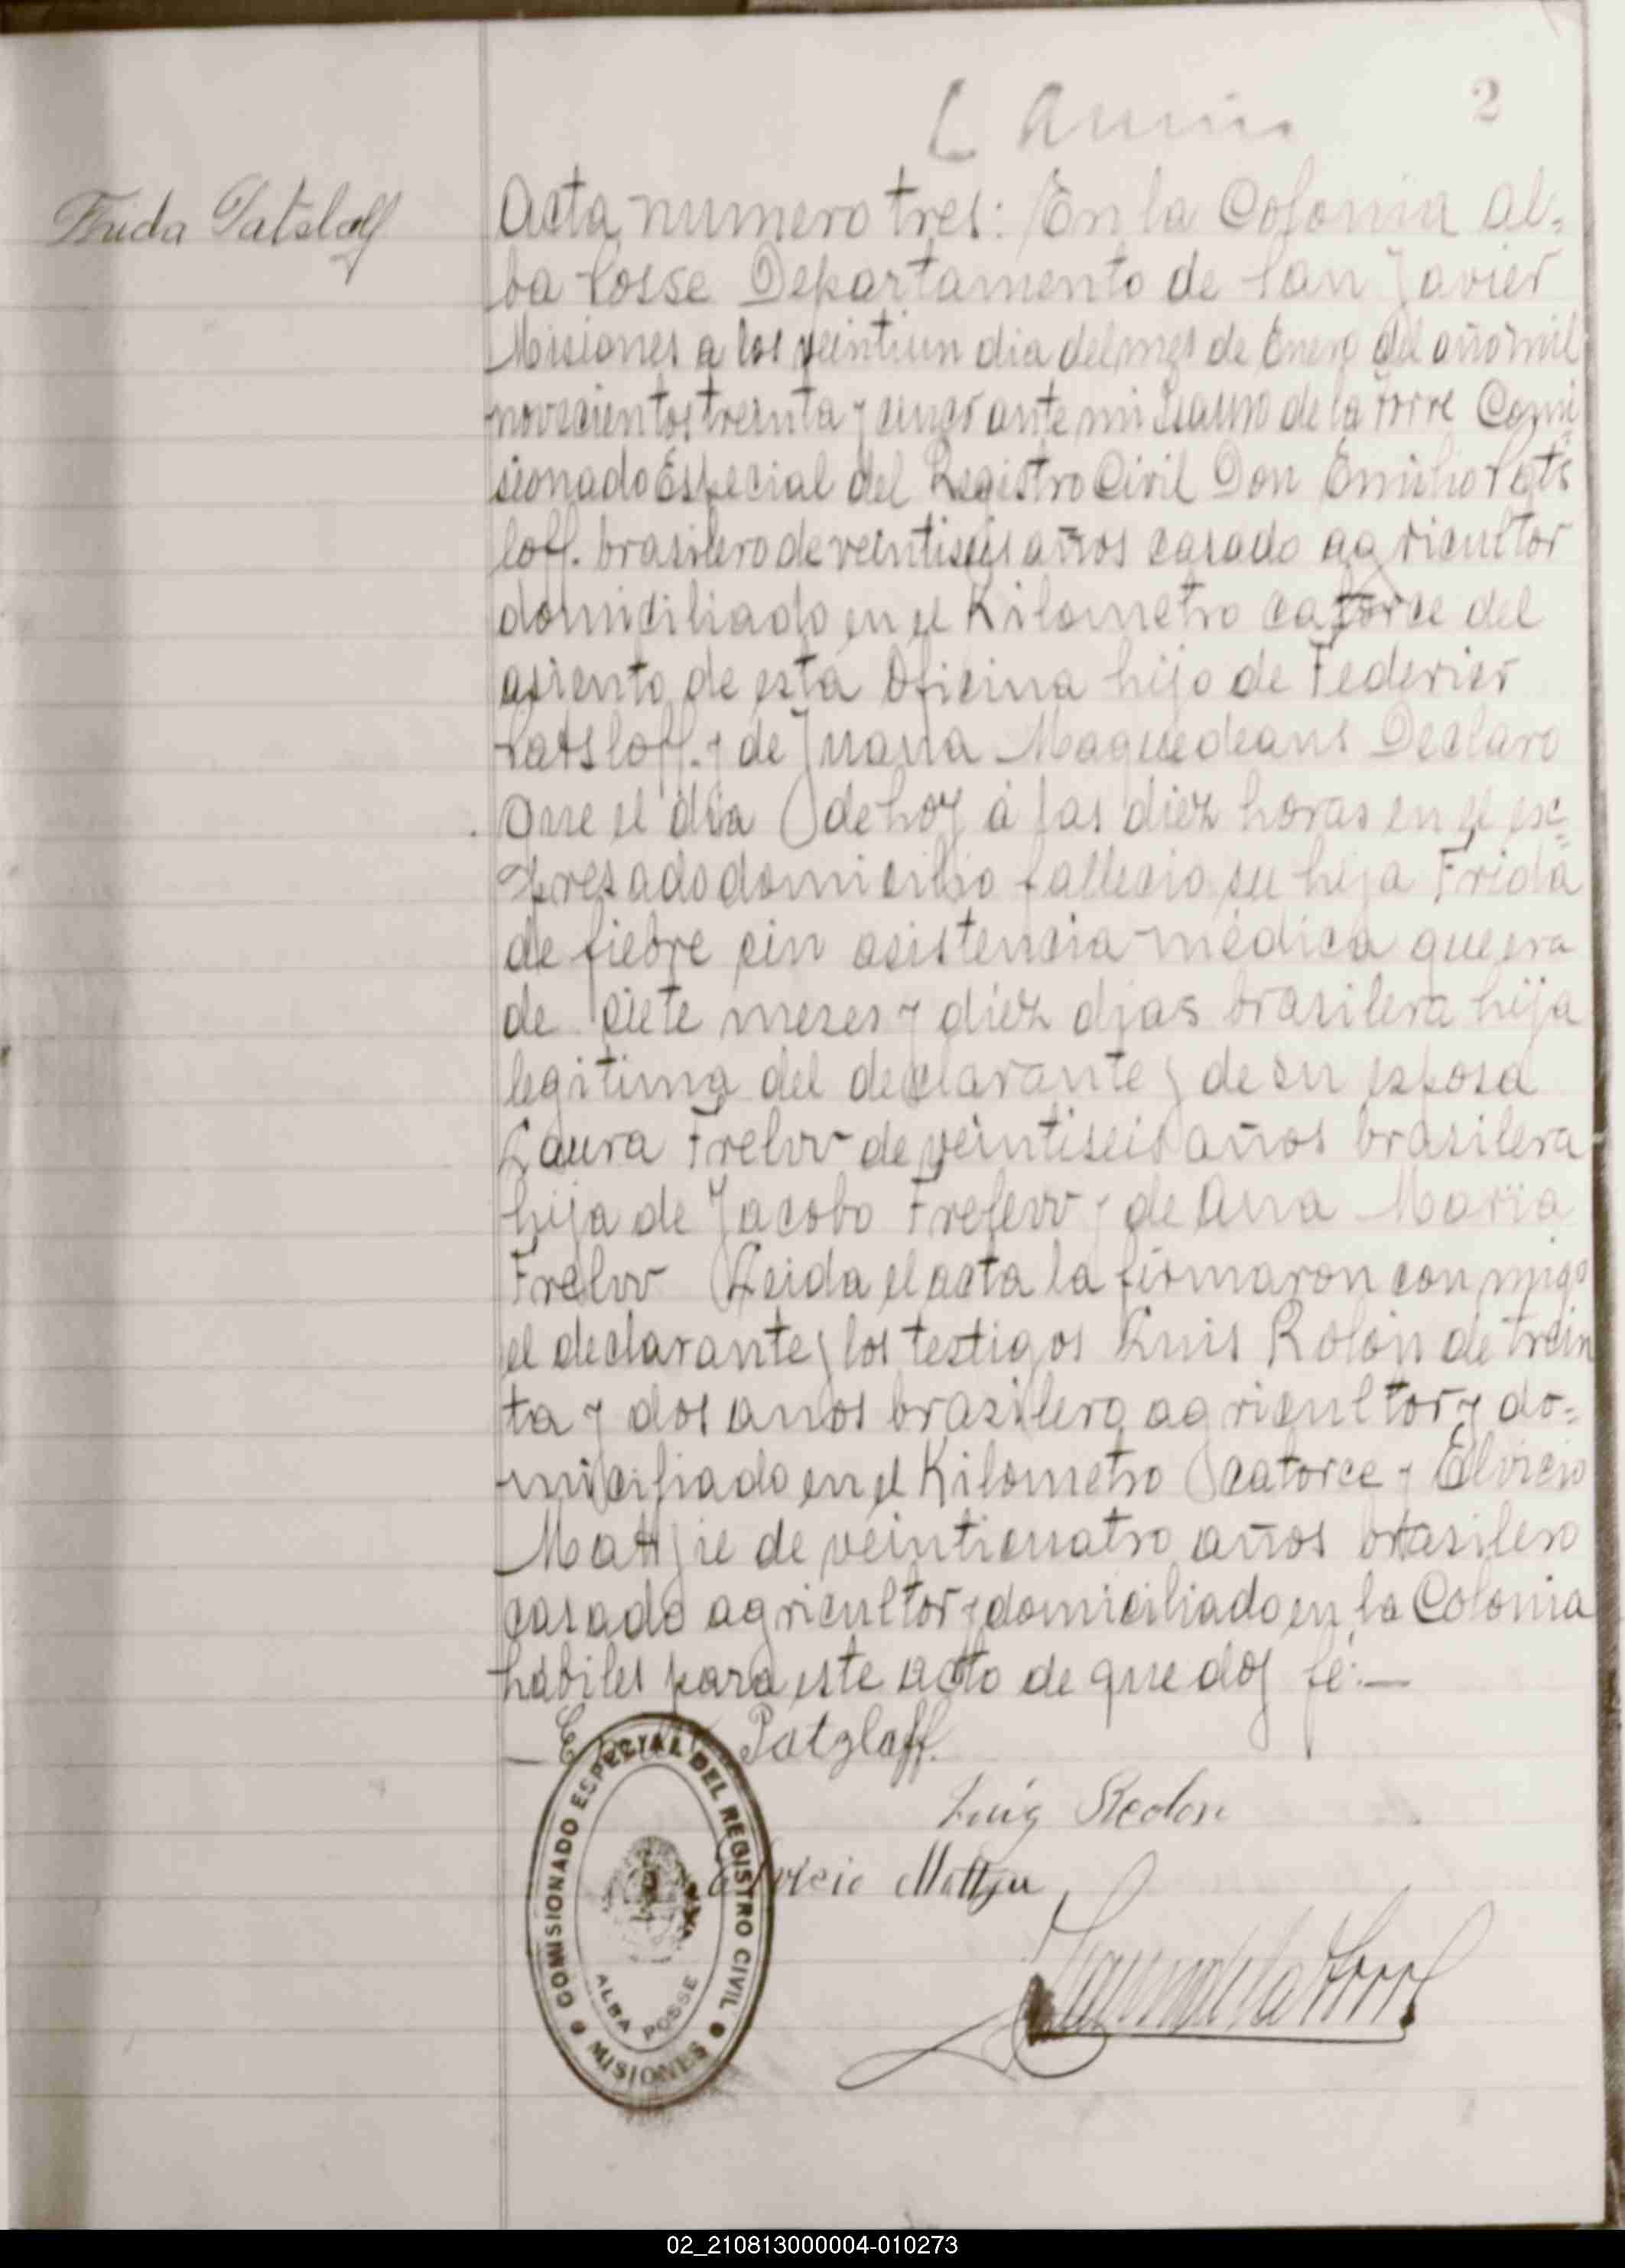 2
Frida Patslaff
Acta numero tres: En la Colonia Al=
ba Posse Departamento de San Javier
Misiones a los veintiun dia del mes de Enero del año mil
novecientos treinta y cinco ante mi de la Torre Comi=
sionado Especial del Registro Civil Don Emilio Pats
loff. brasilero de veintiseis años casado agricultor
domiciliado en el Kilometro catorce del
asiento de esta Oficina hijo de Federico
Patsloff. y de Juana Maquedeans Declaro
Que el dia de hoy á las diez horas en el esc=
presado domicilio fallecio su hija Frida
de fiebre sin asistencia médica que era
de siete meses y diez dias brasilera hija
legitima del declarante y de su esposa
Laura Frelvv de veintiseis años brasilera
hija de Jacobo Frelevv y de Ana Maria
Frelvv Leida el acta la firmaron con migo
el declarante y los testigos Luis Rolon de trein
ta y dos anos brasilero agricultor y do=
miciliado en el Kilometro catorce y Elvicio
Mattjie de veinticuatro años brasilero
casado agricultor y domiciliado en la Colonia
hábiles para este acto de que doy fé:—
Patzlaff.
Luiz Redon
Mattjie
de la Torre
COMISIONADO ESPECIAL DEL REGISTRO CIVIL
ALBA POSSE
MISIONES
02_210813000004-010273